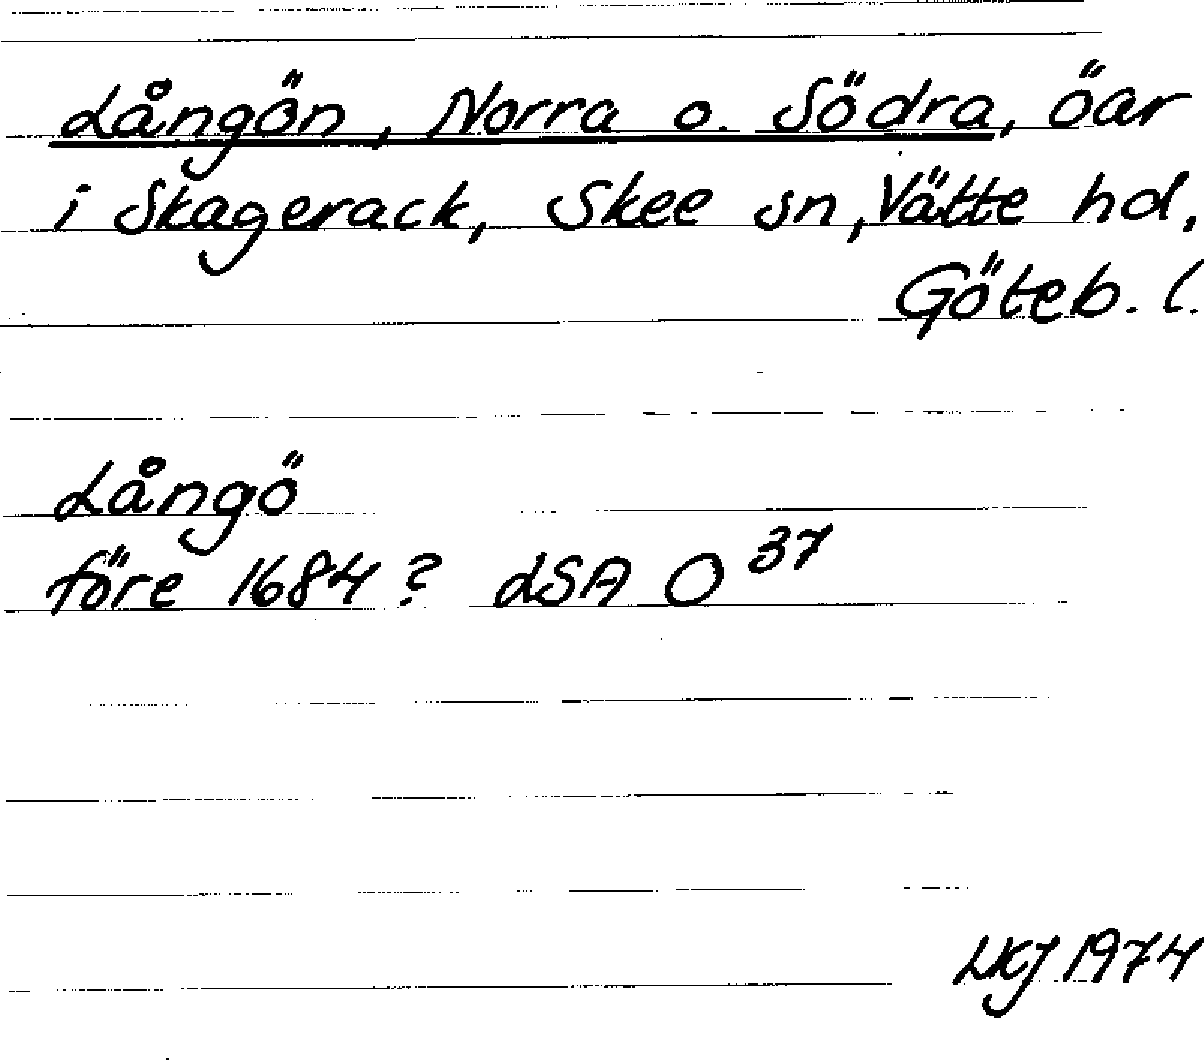 Långön, Norra o. Södra, öar
i Skagerack, Skee sn, Vätte hd,
Göteb. l.
Långö
före 1684? LSA O 37
LKJ 1974